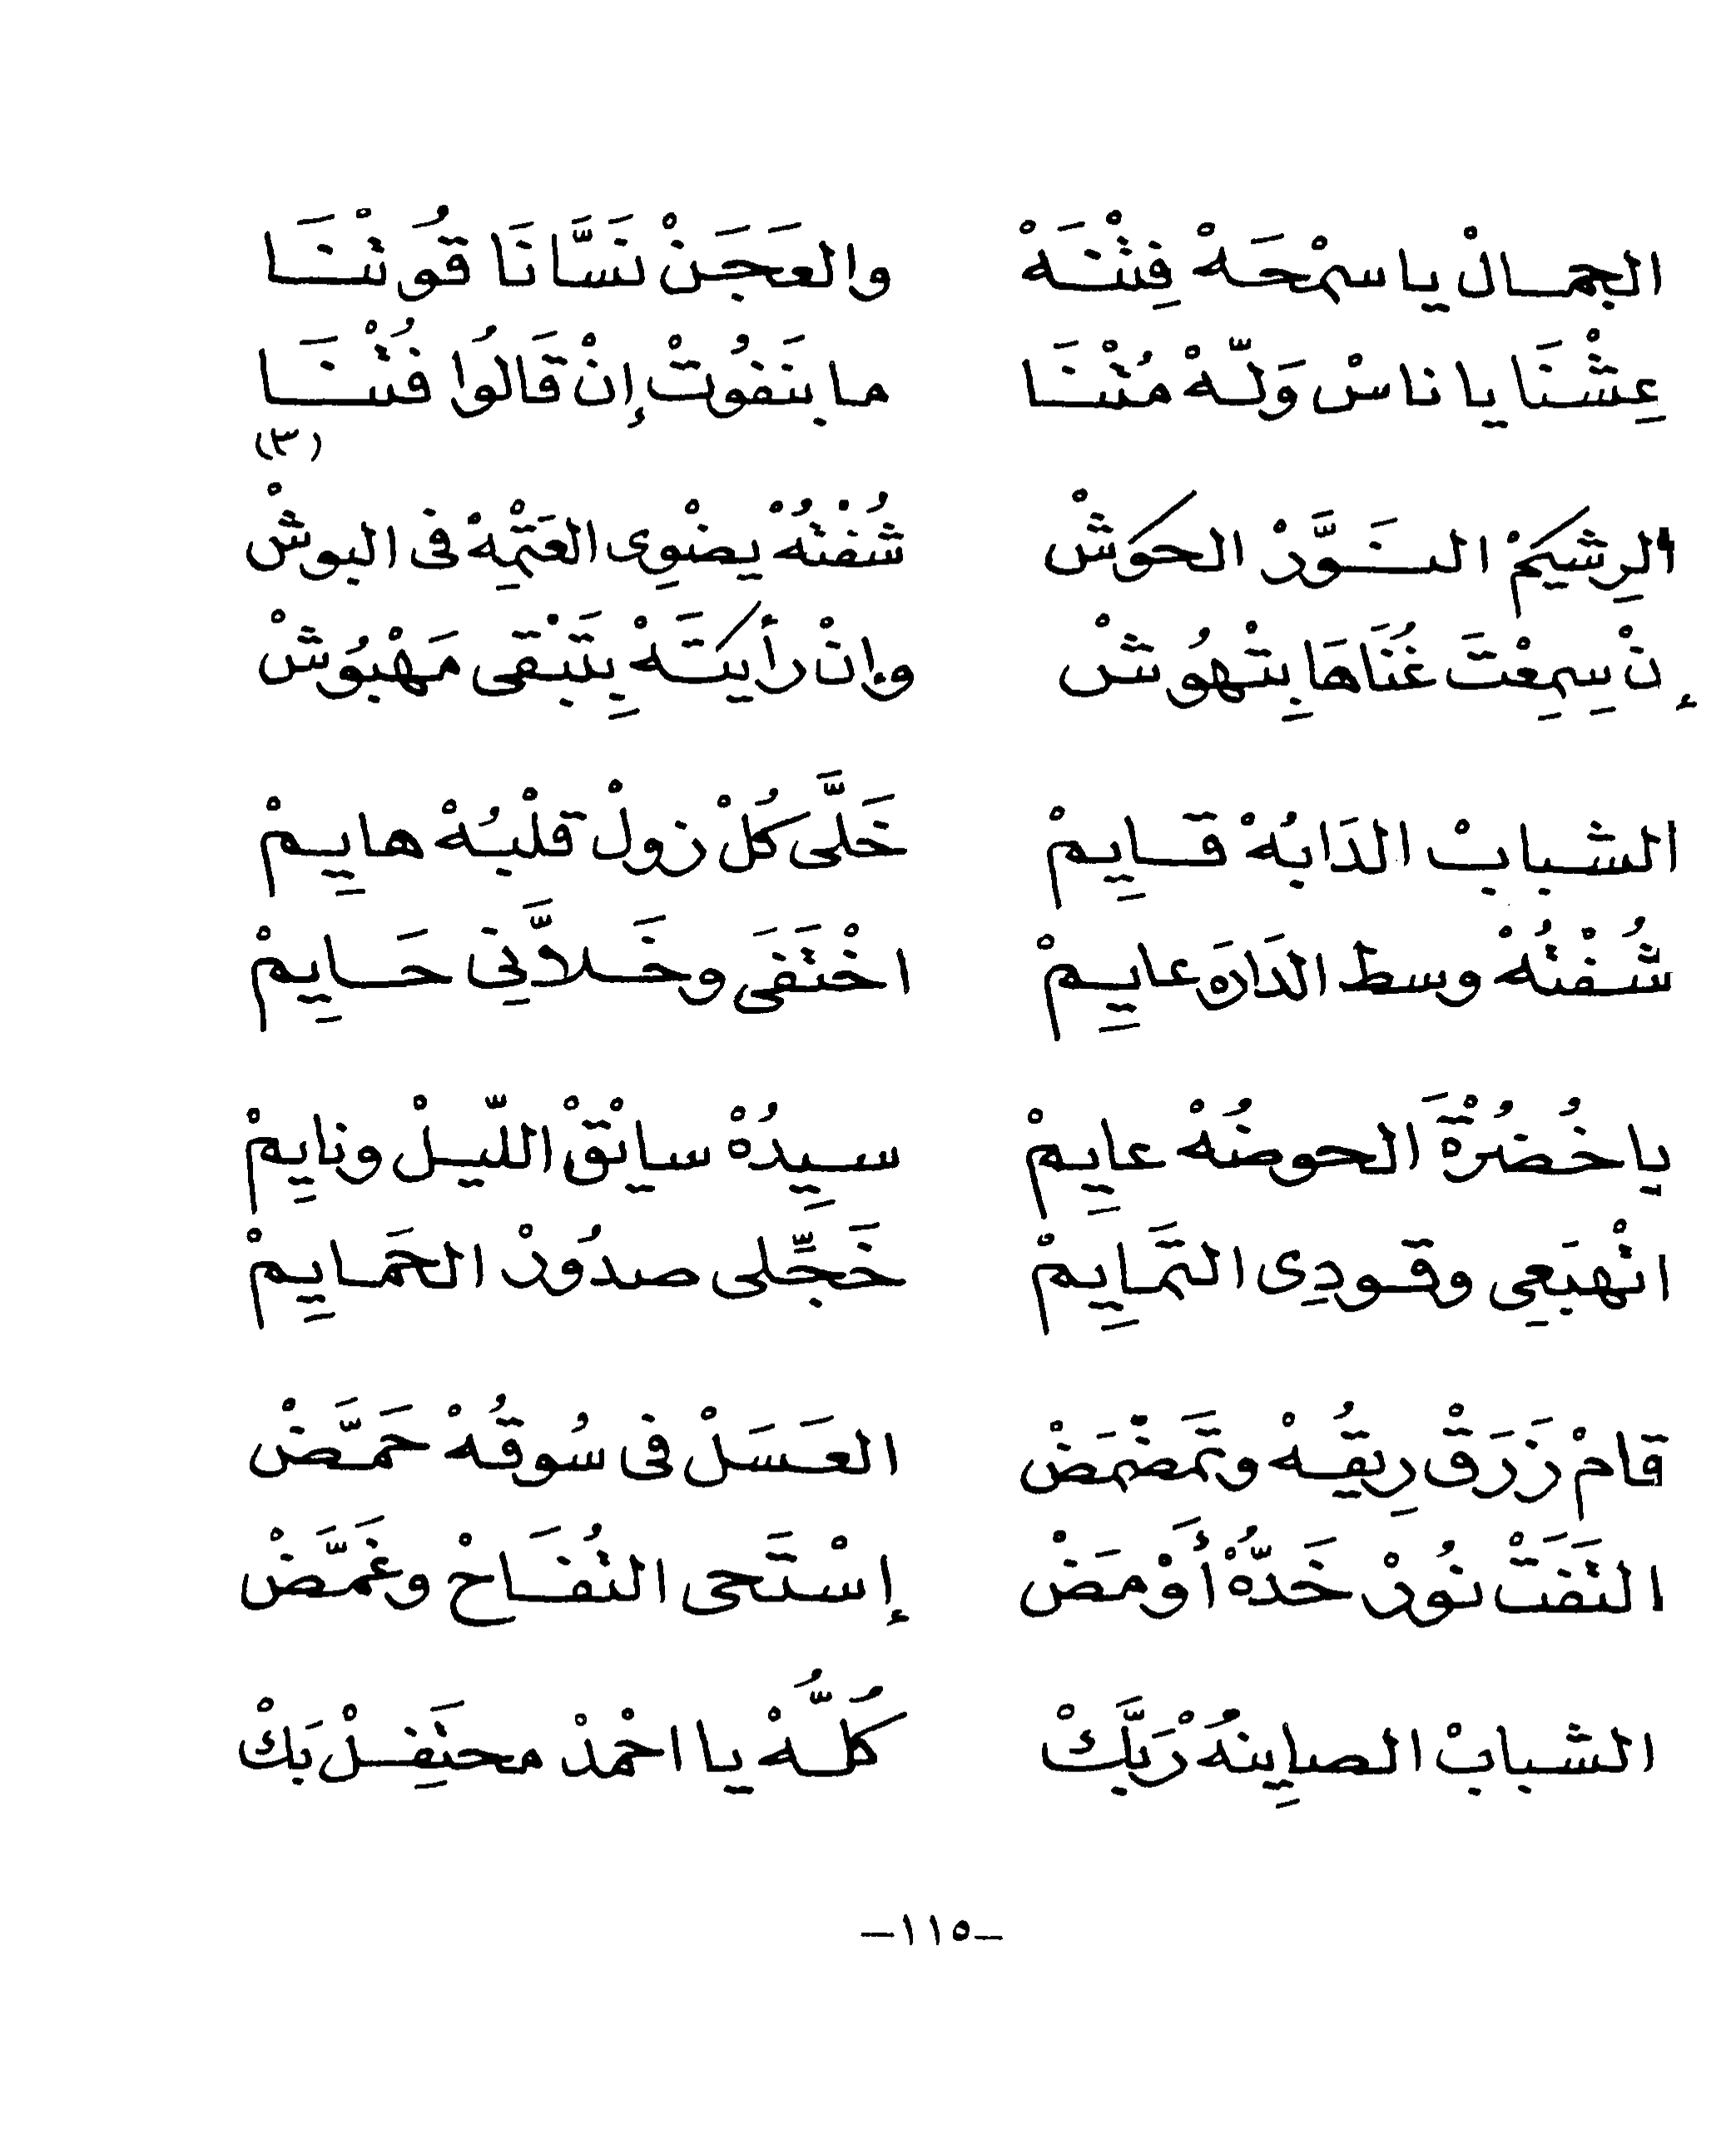 الجمالْ يا سمْحَهْ فِتْنَهْ والعَجَنْ نَسَّانَا قُوتْنَا
عِشْنَا يا ناسْ وَلّهْ مُتْنَا ما بنَفُوتْ إنْ قَالُوا فُتْنَا
(٣)
الرِشيكمْ النَوَّرْ الحكوشْ شُفْتُهْ يضْوِى العَتْمِهْ فى البوشْ
إنْ سِمِعْتَ غُنَاهَا بِتْهُوشْ وإنْ رأيتَهْ بِتَبْقى مَهْبُوشْ
الشبابْ الدَابُهْ قايِمْ خَلَّى كُلْ زولْ قلْبُهْ هايِمْ
شُفْتُهْ وسط الدَارَه عايِمْ اخْتَفَى وخَلاَّنِى حَايِمْ
يا خُضُرْةَ الحوضُهْ عايِمْ سِيدُهْ سايْقْ اللّيلْ ونايِمْ
انْهبَعِى وقودِى التَمايِمْ خَجِّلى صدُورْ الحَمايِمْ
قامْ زَرَقْ رِيقُهْ وتمَضْمَضْ العَسَلْ فى سُوقُهْ حَمَّضْ
التَفَتْ نُورْ خَدُّهْ أَوْمَضْ إسْتَحى التُفَاحْ وغَمَّضْ
الشبابْ الصايِنُهْ رَبَّكْ كُلُّهْ يا احْمدْ محتَفِلْ بَكْ
–١١٥–